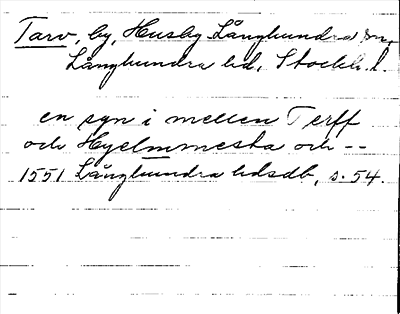 Tarv, by, Husby Långhundra sn,
Långhundra hd, Stockh. l.
en syn i mellen Terff
och Hyelmmesta och --
1551 Långhundra hdsdb, s. 54.